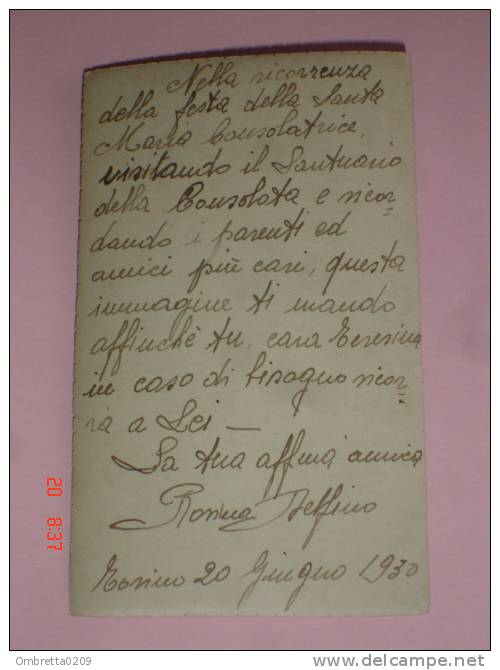 Nella ricorrenza
della festa della Santa
Maria Consolatrice,
visitando il Santuario
della Consolata e ricor-
dando i parenti ed
amici più cari, questa
immagine ti mando
affinchè tu, cara Teresina
in caso di bisogno ricor-
ra a Lei —
La tua affma amica
Rosina Delfino
Torino 20 Giugno 1930
20 8:37
Ombretta0209
http://www.delcampe.net